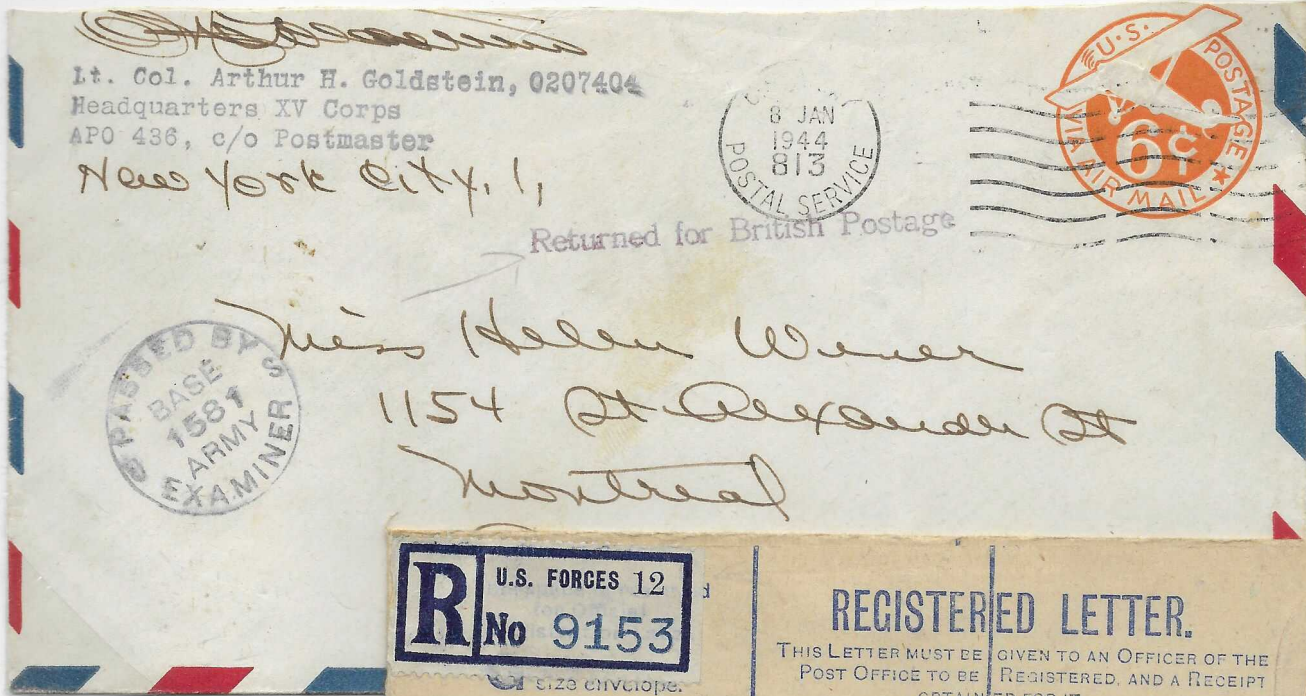 Lt. Col. Arthur H. Goldstein, 0207404
Headquarters XV Corps
APO 436, c/o Postmaster
New York City, 1,
8 JAN
1944
813
POSTAL SERVICE
U.S. POSTAGE
6¢
VIA AIR MAIL
Returned for British Postage
Miss Helen
1154 St Alexander St
Montreal
PASSED BY
BASE
1581
ARMY
EXAMINER S
R
U.S. FORCES 12
No 9153
size envelope.
REGISTERED LETTER.
THIS LETTER MUST BE GIVEN TO AN OFFICER OF THE
POST OFFICE TO BE REGISTERED, AND A RECEIPT